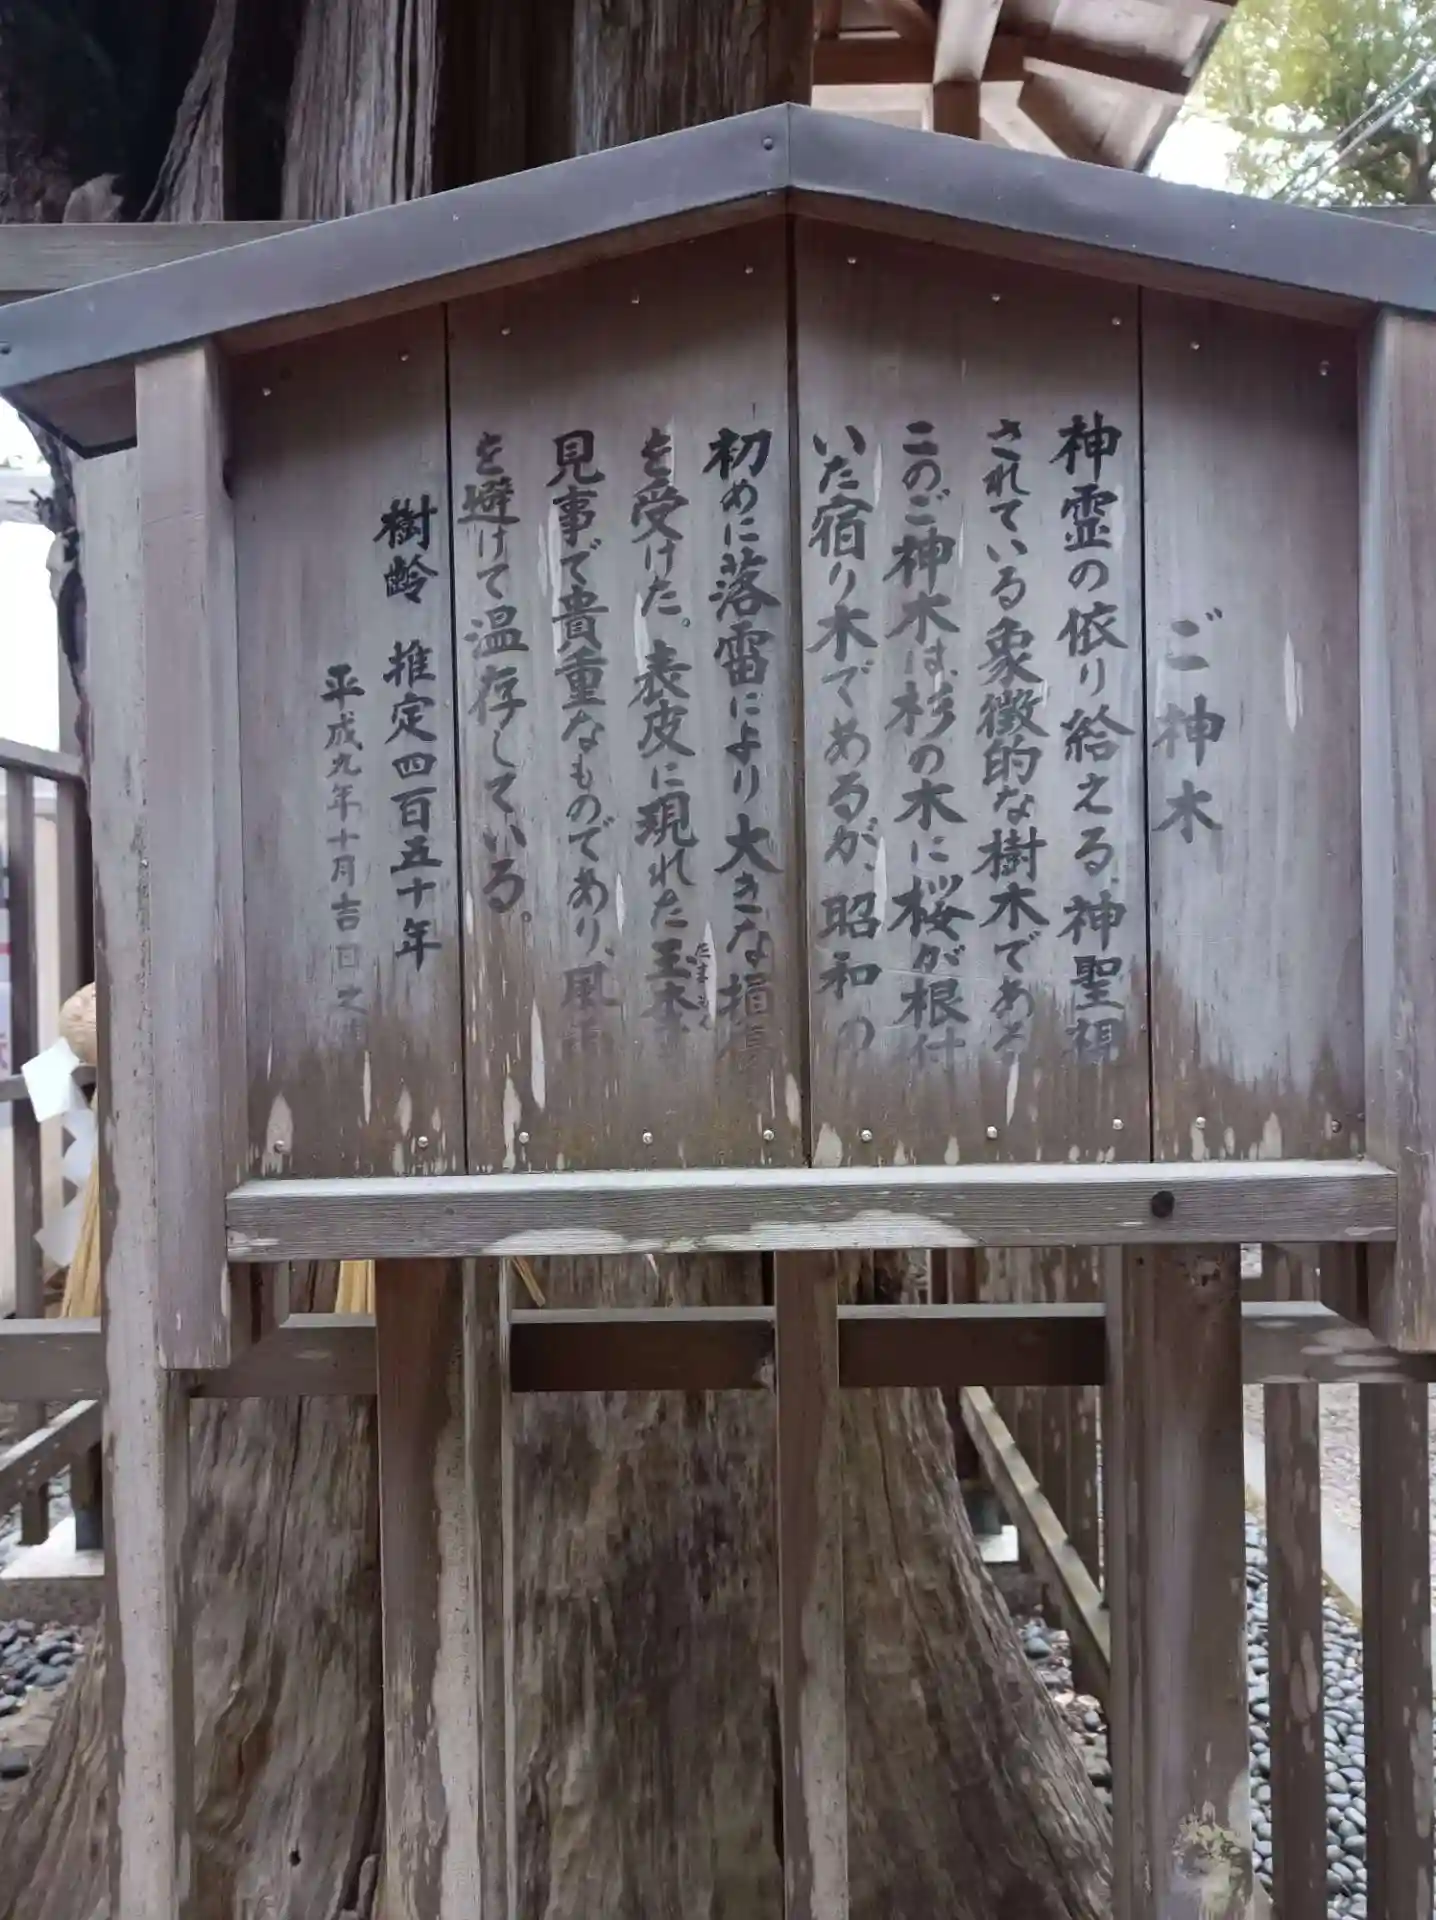 ご神木
神霊の依り給える、神聖視
されている象徴的な樹木である
このご神木は、杉の木に桜が根付
いた宿り木であるが、昭和の
初めに落雷により大きな損傷
を受けた。表皮に現れた玉杢
たまもく
見事で貴重なものであり、風雨
を避けて温存している。
樹齢 推定四百五十年
平成九年十月吉日之